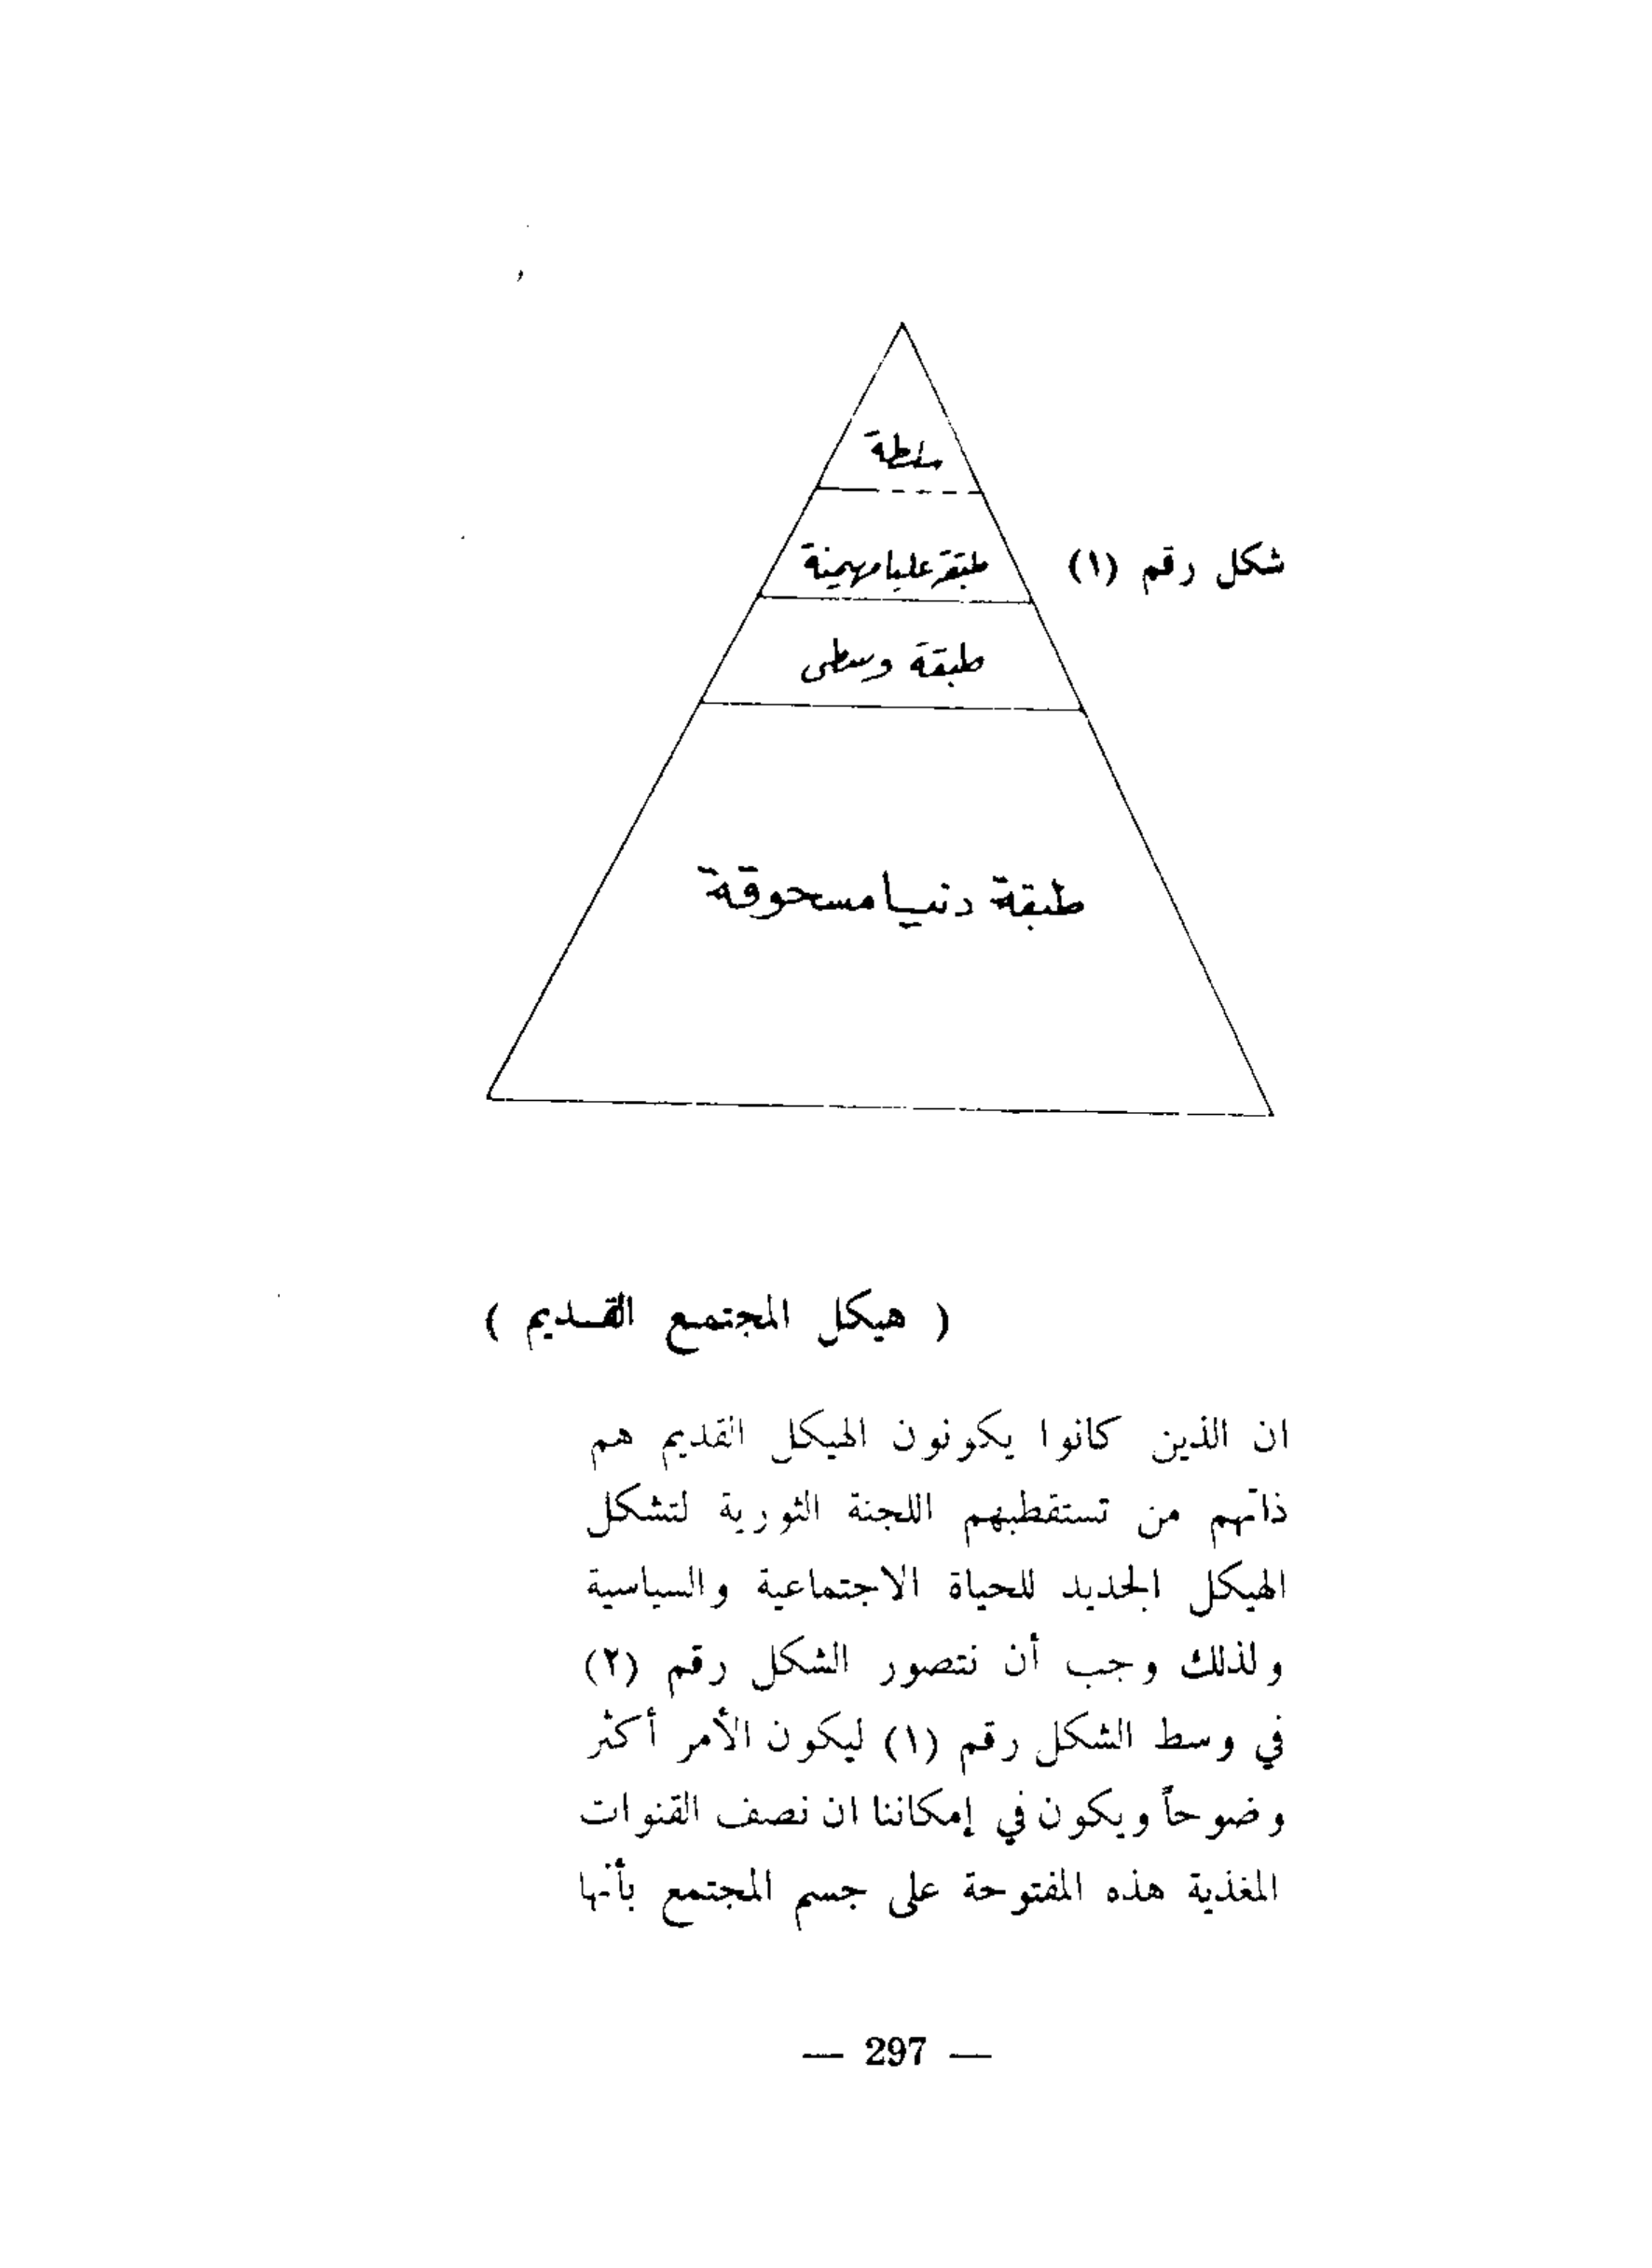 سلطة
طبقة عليا مهيمنة
شكل رقم (١)
طبقة وسطى
طبقة دنيا مسحوقة
( هيكل المجتمع القديم )
ان الذين كانوا يكونون الهيكل القديم هم
ذاتهم من تستقطبهم اللجنة الثورية لتشكل
الهيكل الجديد للحياة الاجتماعية والسياسية
ولذلك وجب أن نتصور الشكل رقم (٢)
في وسط الشكل رقم (١) ليكون الأمر أكثر
وضوحاً ويكون في إمكاننا ان نصف القنوات
المغذية هذه المفتوحة على جسم المجتمع بأنها
— 297 —